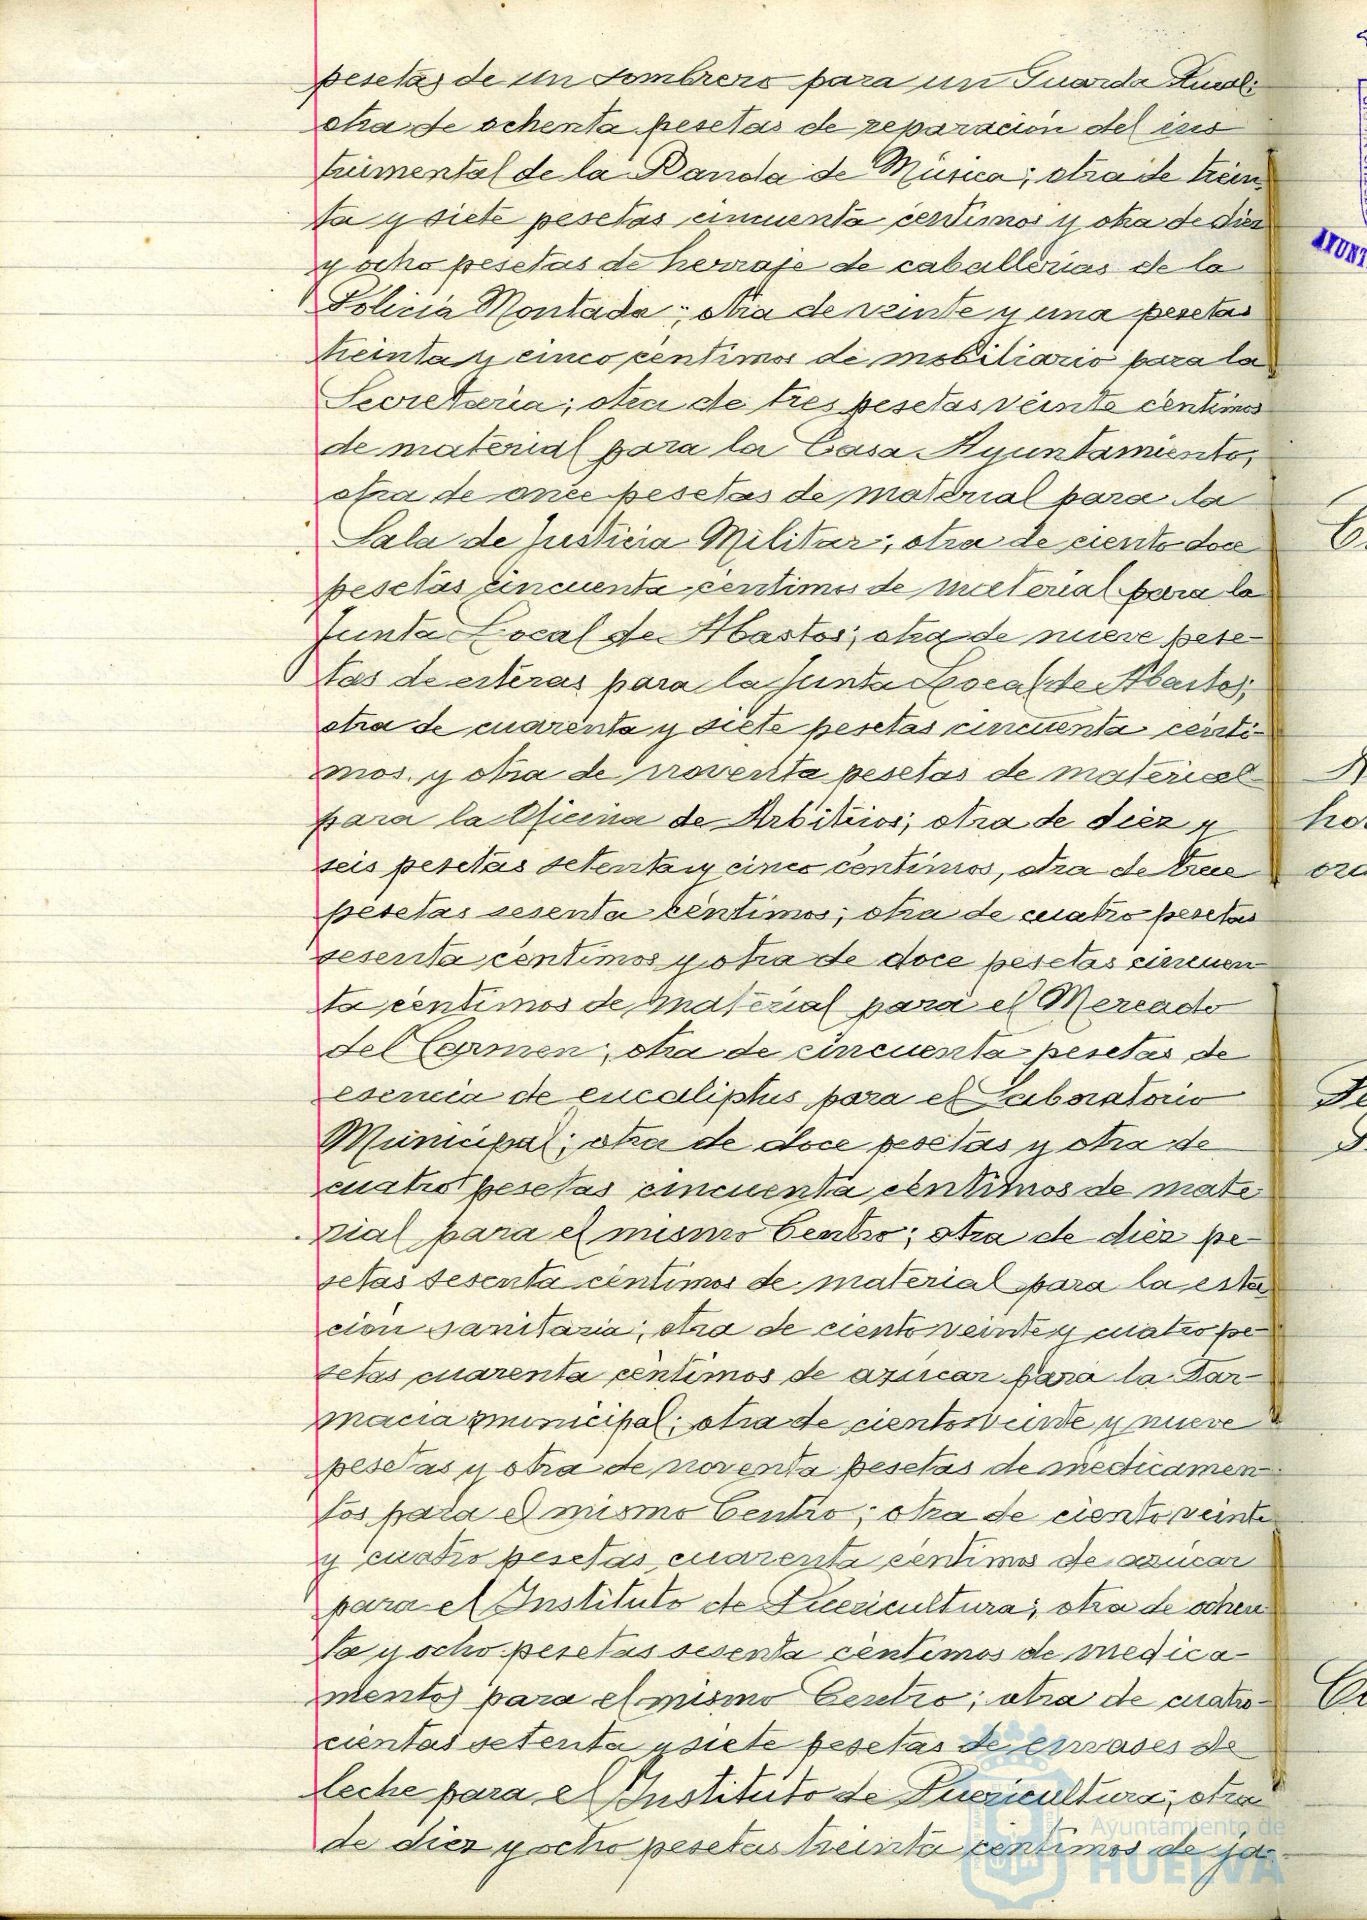 pesetas de un sombrero para un Guarda Rural;
otra de ochenta pesetas de reparación del ins
trumental de la Banda de Música; otra de trein
ta y siete pesetas cincuenta centimos y otra de diez
y ocho pesetas de herraje de caballerias de la
Policia Montada; otra de veinte y una pesetas
treinta y cinco centimos de mobiliario para la
Secretaria; otra de tres pesetas veinte centimos
de material para la Casa Ayuntamiento,
otra de once pesetas de material para la
Sala de Justicia Militar; otra de ciento doce
pesetas cincuenta centimos de material para la
Junta Local de Abastos; otra de nueve pese-
tas de esteras para la Junta Local de Abastos;
otra de cuarenta y siete pesetas cincuenta centi-
mos y otra de noventa pesetas de material
para la Oficina de Arbitrios; otra de diez y
seis pesetas setenta y cinco centimos, otra de trece
pesetas sesenta centimos; otra de cuatro pesetas
sesenta centimos y otra de doce pesetas cincuen
ta centimos de material para el Mercado
del Carmen; otra de cincuenta pesetas de
esencia de eucaliptus para el Laboratorio
Municipal; otra de doce pesetas y otra de
cuatro pesetas cincuenta centimos de mate
rial para el mismo Centro; otra de diez pe-
setas sesenta centimos de material para la esta
ción sanitaria; otra de ciento veinte y cuatro pe-
setas cuarenta centimos de azúcar para la Far-
macia municipal; otra de ciento veinte y nueve
pesetas y otra de noventa pesetas de medicamen-
tos para el mismo Centro; otra de ciento veinte
y cuatro pesetas cuarenta centimos de azúcar
para el Instituto de Puericultura; otra de ochen
ta y ocho pesetas sesenta centimos de medica-
mentos para el mismo Centro; otra de cuatro-
cientas setenta y siete pesetas de envases de
leche para el Instituto de Puericultura; otra
de diez y ocho pesetas treinta centimos de ja-
Ayuntamiento de
HUELVA
AYUNT